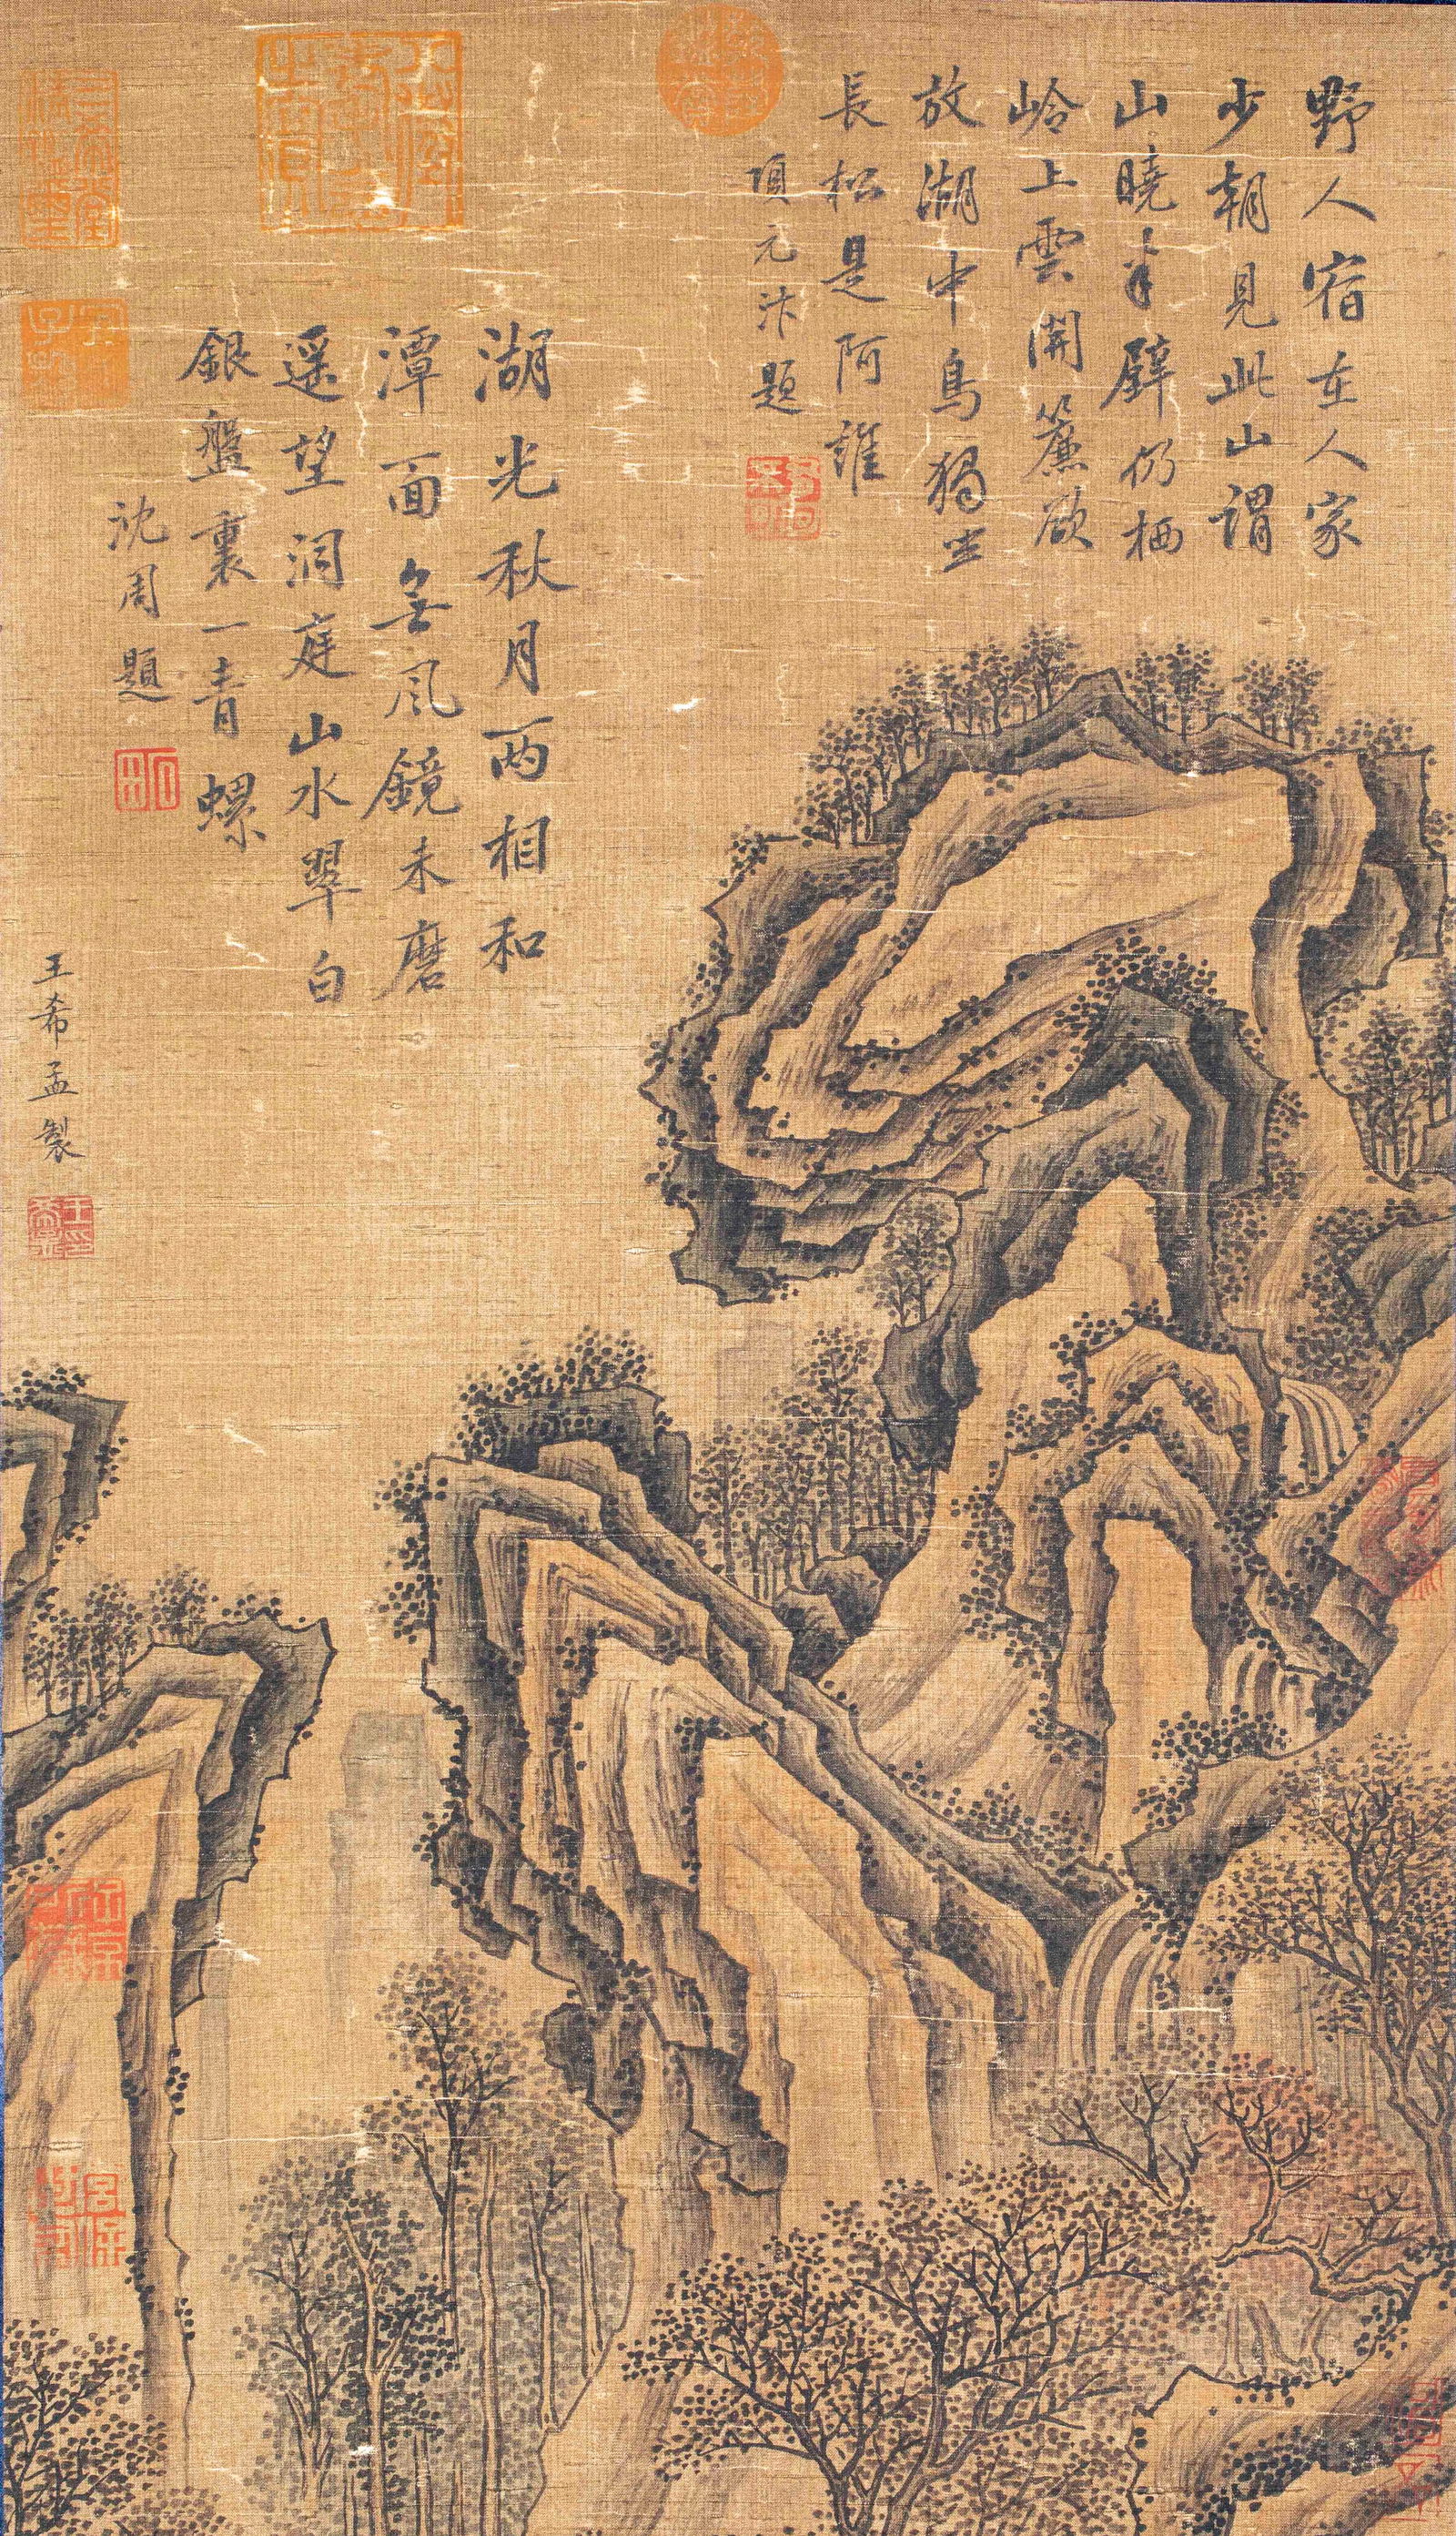 野人宿在人家
少朝見此山謂
山曉半壁仍栖
岭上雲開簾欲
放湖中鳥獨坐
長松是阿誰
項元汴題
湖光秋月两相和
潭面無風鏡未磨
遥望洞庭山水翠白
銀盤裏一青螺
沈周題
王希孟製